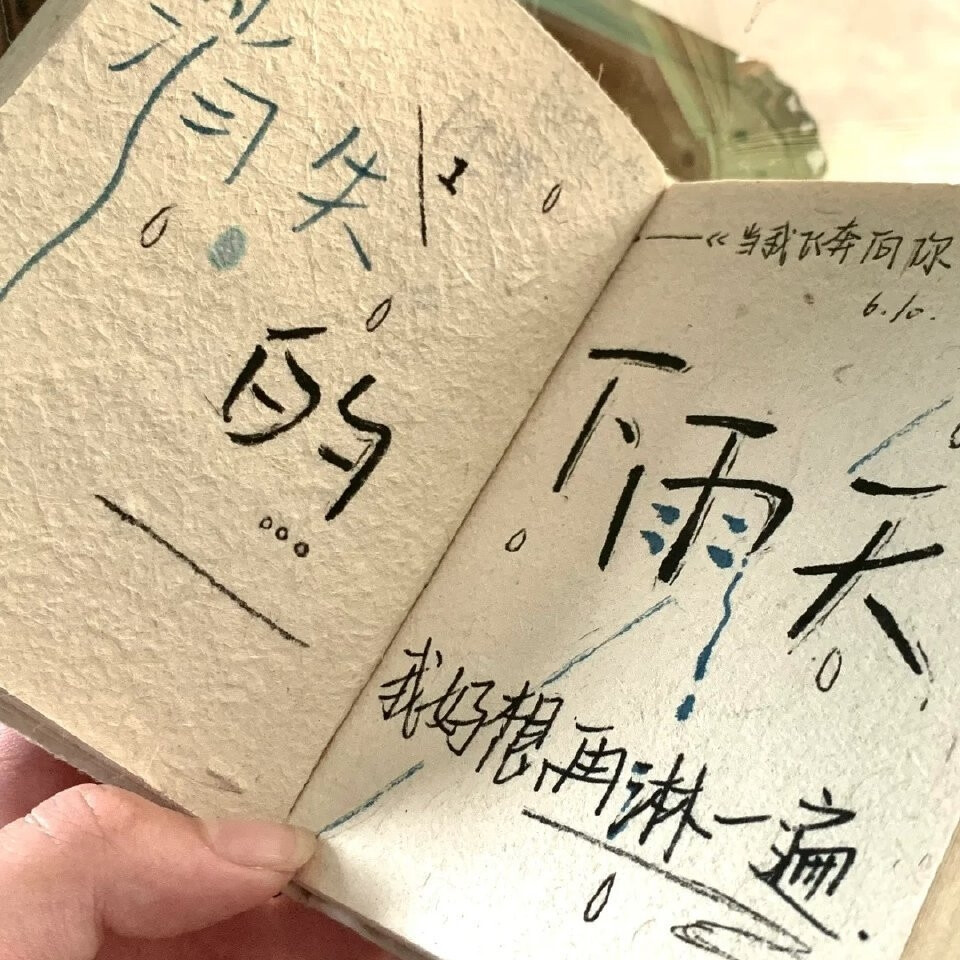 消失
的
...
——《当我飞奔向你
6.10.
下雨天
我好想再淋一遍.